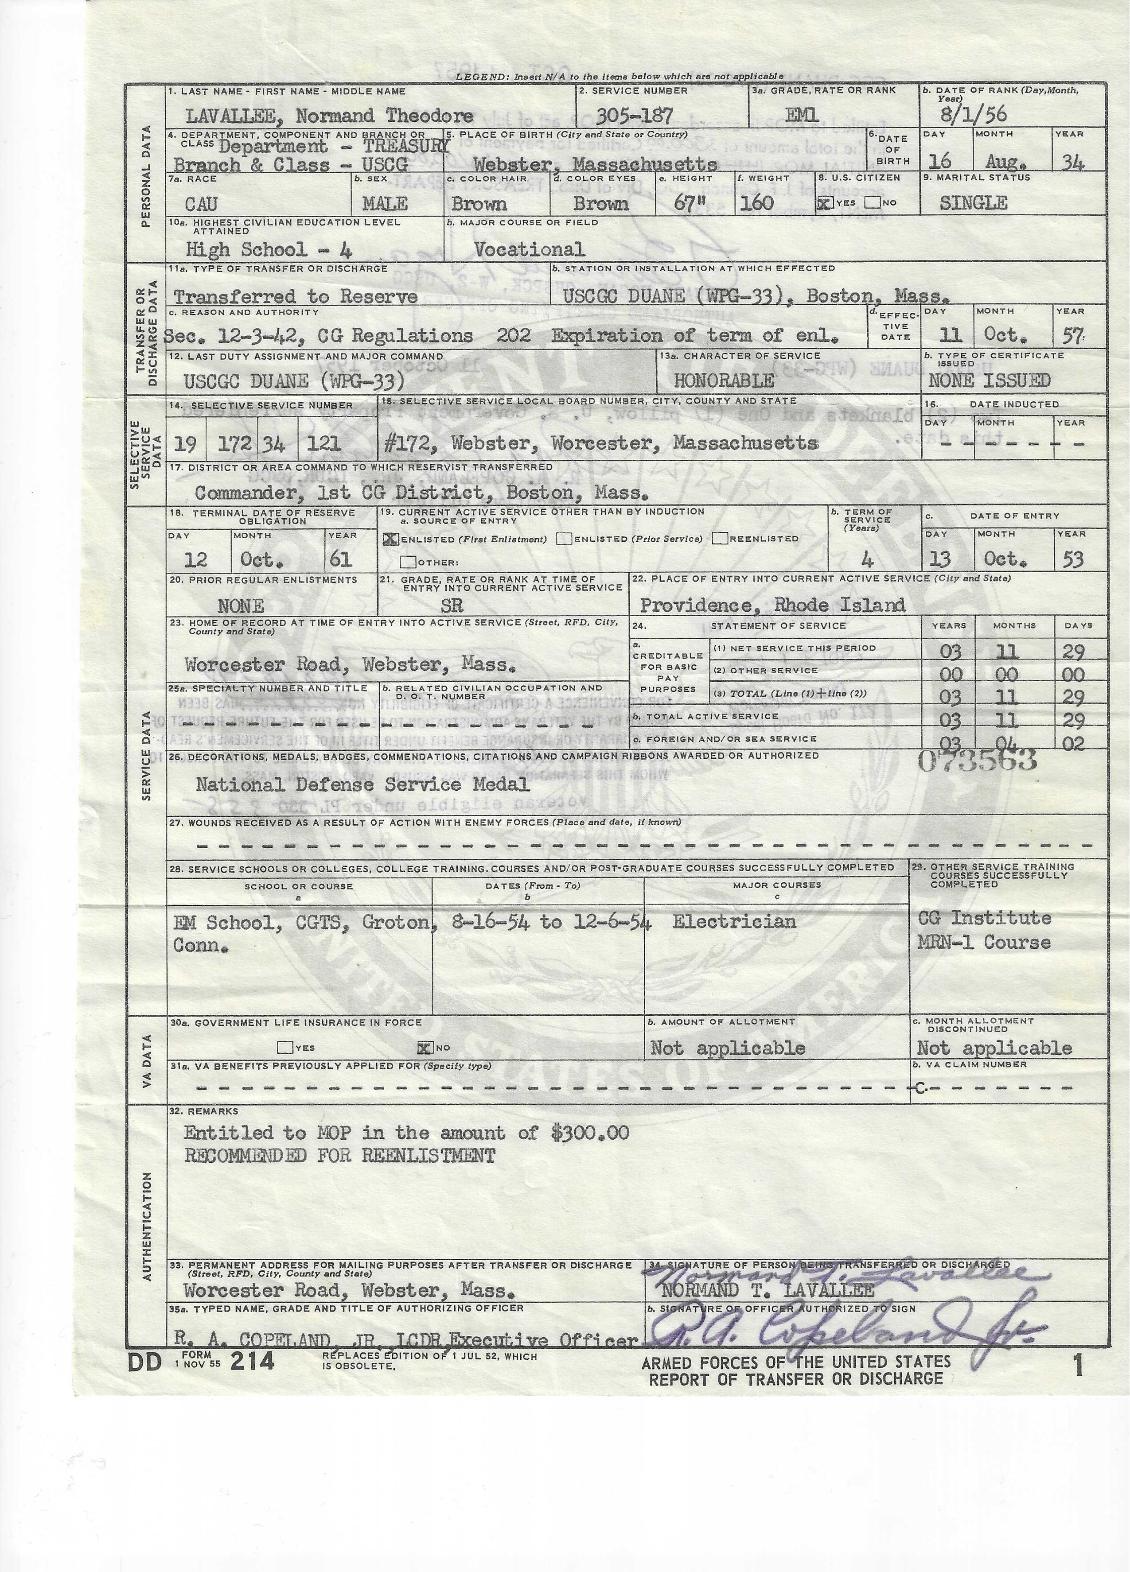 LEGEND: Insert N/A to the items below which are not applicable
PERSONAL DATA
1. LAST NAME - FIRST NAME - MIDDLE NAME
LAVALLEE, Normand Theodore
2. SERVICE NUMBER
305-187
3a. GRADE, RATE OR RANK
EM1
b. DATE OF RANK (Day, Month, Year)
8/1/56
4. DEPARTMENT, COMPONENT AND BRANCH OR CLASS
Department - TREASURY
Branch & Class - USCG
5. PLACE OF BIRTH (City and State or Country)
Webster, Massachusetts
6. DATE OF BIRTH
DAY MONTH YEAR
16 Aug. 34
7a. RACE
CAU
b. SEX
MALE
c. COLOR HAIR
Brown
d. COLOR EYES
Brown
e. HEIGHT
67"
f. WEIGHT
160
8. U.S. CITIZEN
X YES NO
9. MARITAL STATUS
SINGLE
10a. HIGHEST CIVILIAN EDUCATION LEVEL ATTAINED
High School - 4
b. MAJOR COURSE OR FIELD
Vocational
TRANSFER OR DISCHARGE DATA
11a. TYPE OF TRANSFER OR DISCHARGE
Transferred to Reserve
b. STATION OR INSTALLATION AT WHICH EFFECTED
USCGC DUANE (WPG-33), Boston, Mass.
c. REASON AND AUTHORITY
Sec. 12-3-42, CG Regulations 202 Expiration of term of enl.
d. EFFECTIVE DATE
DAY MONTH YEAR
11 Oct. 57
12. LAST DUTY ASSIGNMENT AND MAJOR COMMAND
USCGC DUANE (WPG-33)
13a. CHARACTER OF SERVICE
HONORABLE
b. TYPE OF CERTIFICATE ISSUED
NONE ISSUED
SELECTIVE SERVICE DATA
14. SELECTIVE SERVICE NUMBER
19 172 34 121
15. SELECTIVE SERVICE LOCAL BOARD NUMBER, CITY, COUNTY AND STATE
#172, Webster, Worcester, Massachusetts
16. DATE INDUCTED
DAY MONTH YEAR
- - - - - - -
17. DISTRICT OR AREA COMMAND TO WHICH RESERVIST TRANSFERRED
Commander, 1st CG District, Boston, Mass.
SERVICE DATA
18. TERMINAL DATE OF RESERVE OBLIGATION
DAY MONTH YEAR
12 Oct. 61
19. CURRENT ACTIVE SERVICE OTHER THAN BY INDUCTION
a. SOURCE OF ENTRY
X ENLISTED (First Enlistment) ENLISTED (Prior Service) REENLISTED
OTHER:
b. TERM OF SERVICE (Years)
4
c. DATE OF ENTRY
DAY MONTH YEAR
13 Oct. 53
20. PRIOR REGULAR ENLISTMENTS
NONE
21. GRADE, RATE OR RANK AT TIME OF ENTRY INTO CURRENT ACTIVE SERVICE
SR
22. PLACE OF ENTRY INTO CURRENT ACTIVE SERVICE (City and State)
Providence, Rhode Island
23. HOME OF RECORD AT TIME OF ENTRY INTO ACTIVE SERVICE (Street, RFD, City, County and State)
Worcester Road, Webster, Mass.
24. STATEMENT OF SERVICE YEARS MONTHS DAYS
a. CREDITABLE FOR BASIC PAY PURPOSES
(1) NET SERVICE THIS PERIOD 03 11 29
(2) OTHER SERVICE 00 00 00
(3) TOTAL (Line (1)+line (2)) 03 11 29
b. TOTAL ACTIVE SERVICE 03 11 29
c. FOREIGN AND/OR SEA SERVICE 03 04 02
25a. SPECIALTY NUMBER AND TITLE
b. RELATED CIVILIAN OCCUPATION AND D. O. T. NUMBER
- - - - - - - - - - - - - - - - -
073563
26. DECORATIONS, MEDALS, BADGES, COMMENDATIONS, CITATIONS AND CAMPAIGN RIBBONS AWARDED OR AUTHORIZED
National Defense Service Medal
27. WOUNDS RECEIVED AS A RESULT OF ACTION WITH ENEMY FORCES (Place and date, if known)
- - - - - - - - - - - - - - - - - - - - - - - - - - - - - -
28. SERVICE SCHOOLS OR COLLEGES, COLLEGE TRAINING, COURSES AND/OR POST-GRADUATE COURSES SUCCESSFULLY COMPLETED
SCHOOL OR COURSE a
DATES (From - To) b
MAJOR COURSES c
EM School, CGTS, Groton, 8-16-54 to 12-6-54 Electrician
Conn.
29. OTHER SERVICE TRAINING COURSES SUCCESSFULLY COMPLETED
CG Institute
MRN-1 Course
VA DATA
30a. GOVERNMENT LIFE INSURANCE IN FORCE
YES X NO
b. AMOUNT OF ALLOTMENT
Not applicable
c. MONTH ALLOTMENT DISCONTINUED
Not applicable
31a. VA BENEFITS PREVIOUSLY APPLIED FOR (Specify type)
- - - - - - - - - - - - - - - - - - - - - - - -
b. VA CLAIM NUMBER
C- - - - - - - -
AUTHENTICATION
32. REMARKS
Entitled to MOP in the amount of $300.00
RECOMMENDED FOR REENLISTMENT
33. PERMANENT ADDRESS FOR MAILING PURPOSES AFTER TRANSFER OR DISCHARGE
(Street, RFD, City, County and State)
Worcester Road, Webster, Mass.
34. SIGNATURE OF PERSON BEING TRANSFERRED OR DISCHARGED
Normand T. Lavallee
NORMAND T. LAVALLEE
35a. TYPED NAME, GRADE AND TITLE OF AUTHORIZING OFFICER
R. A. COPELAND, JR, LCDR, Executive Officer
b. SIGNATURE OF OFFICER AUTHORIZED TO SIGN
R. A. Copeland Jr.
DD FORM 1 NOV 55 214
REPLACES EDITION OF 1 JUL 52, WHICH IS OBSOLETE.
ARMED FORCES OF THE UNITED STATES
REPORT OF TRANSFER OR DISCHARGE
1